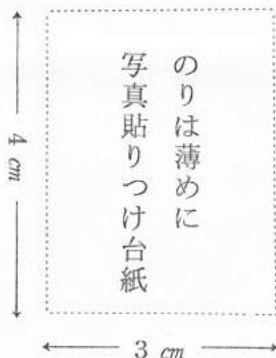 のりは薄めに
写真貼りつけ台紙
4 cm
3 cm